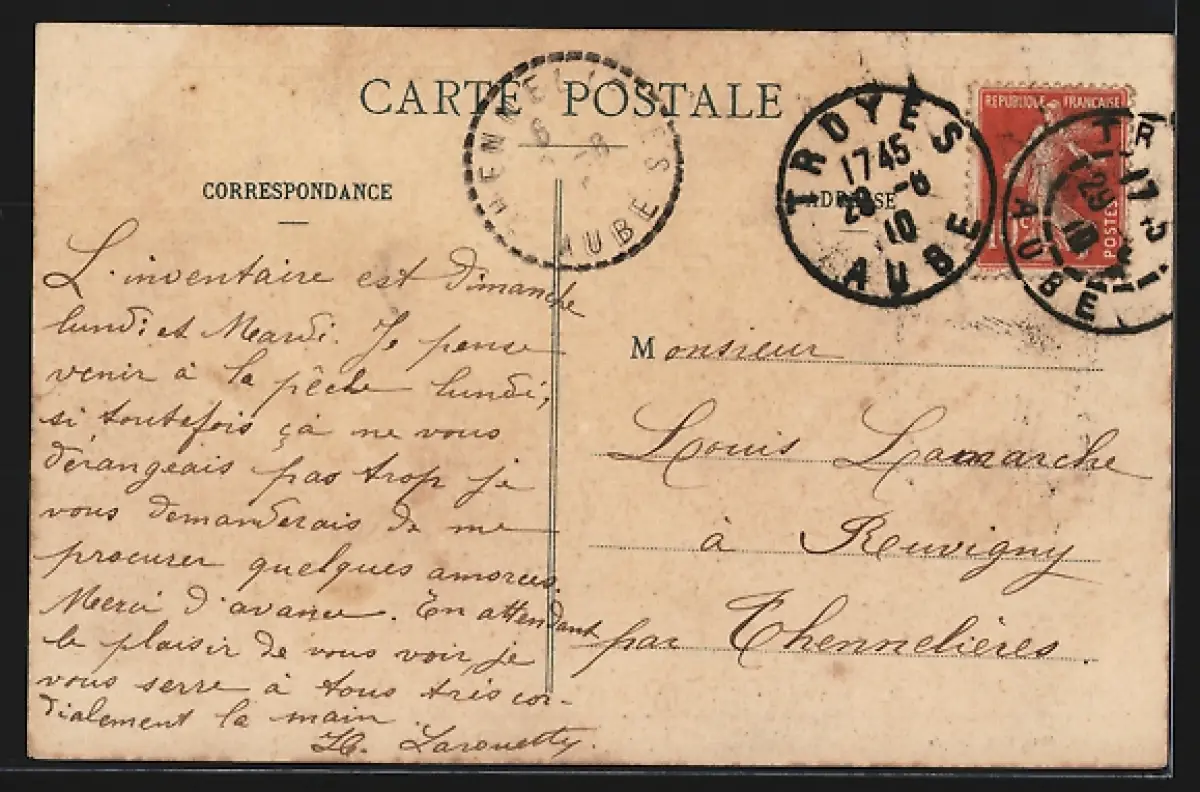 CARTE POSTALE
CORRESPONDANCE
ADRESSE
REPUBLIQUE FRANÇAISE
POSTES
TROYES
1745
AUBE
10
AUBE
AUBE
L'inventaire est Dimanche
lundi et Mardi. Je pense
venir à la pêche lundi,
si toutefois çà ne vous
dérangeais pas trop je
vous demanderais de me
procurer quelques amorces.
Merci d'avance. En attendant
le plaisir de vous voir je
vous serre à tous très cor-
dialement la main
Monsieur
Louis Lamarche
à Rouvigny
par Thennelières.